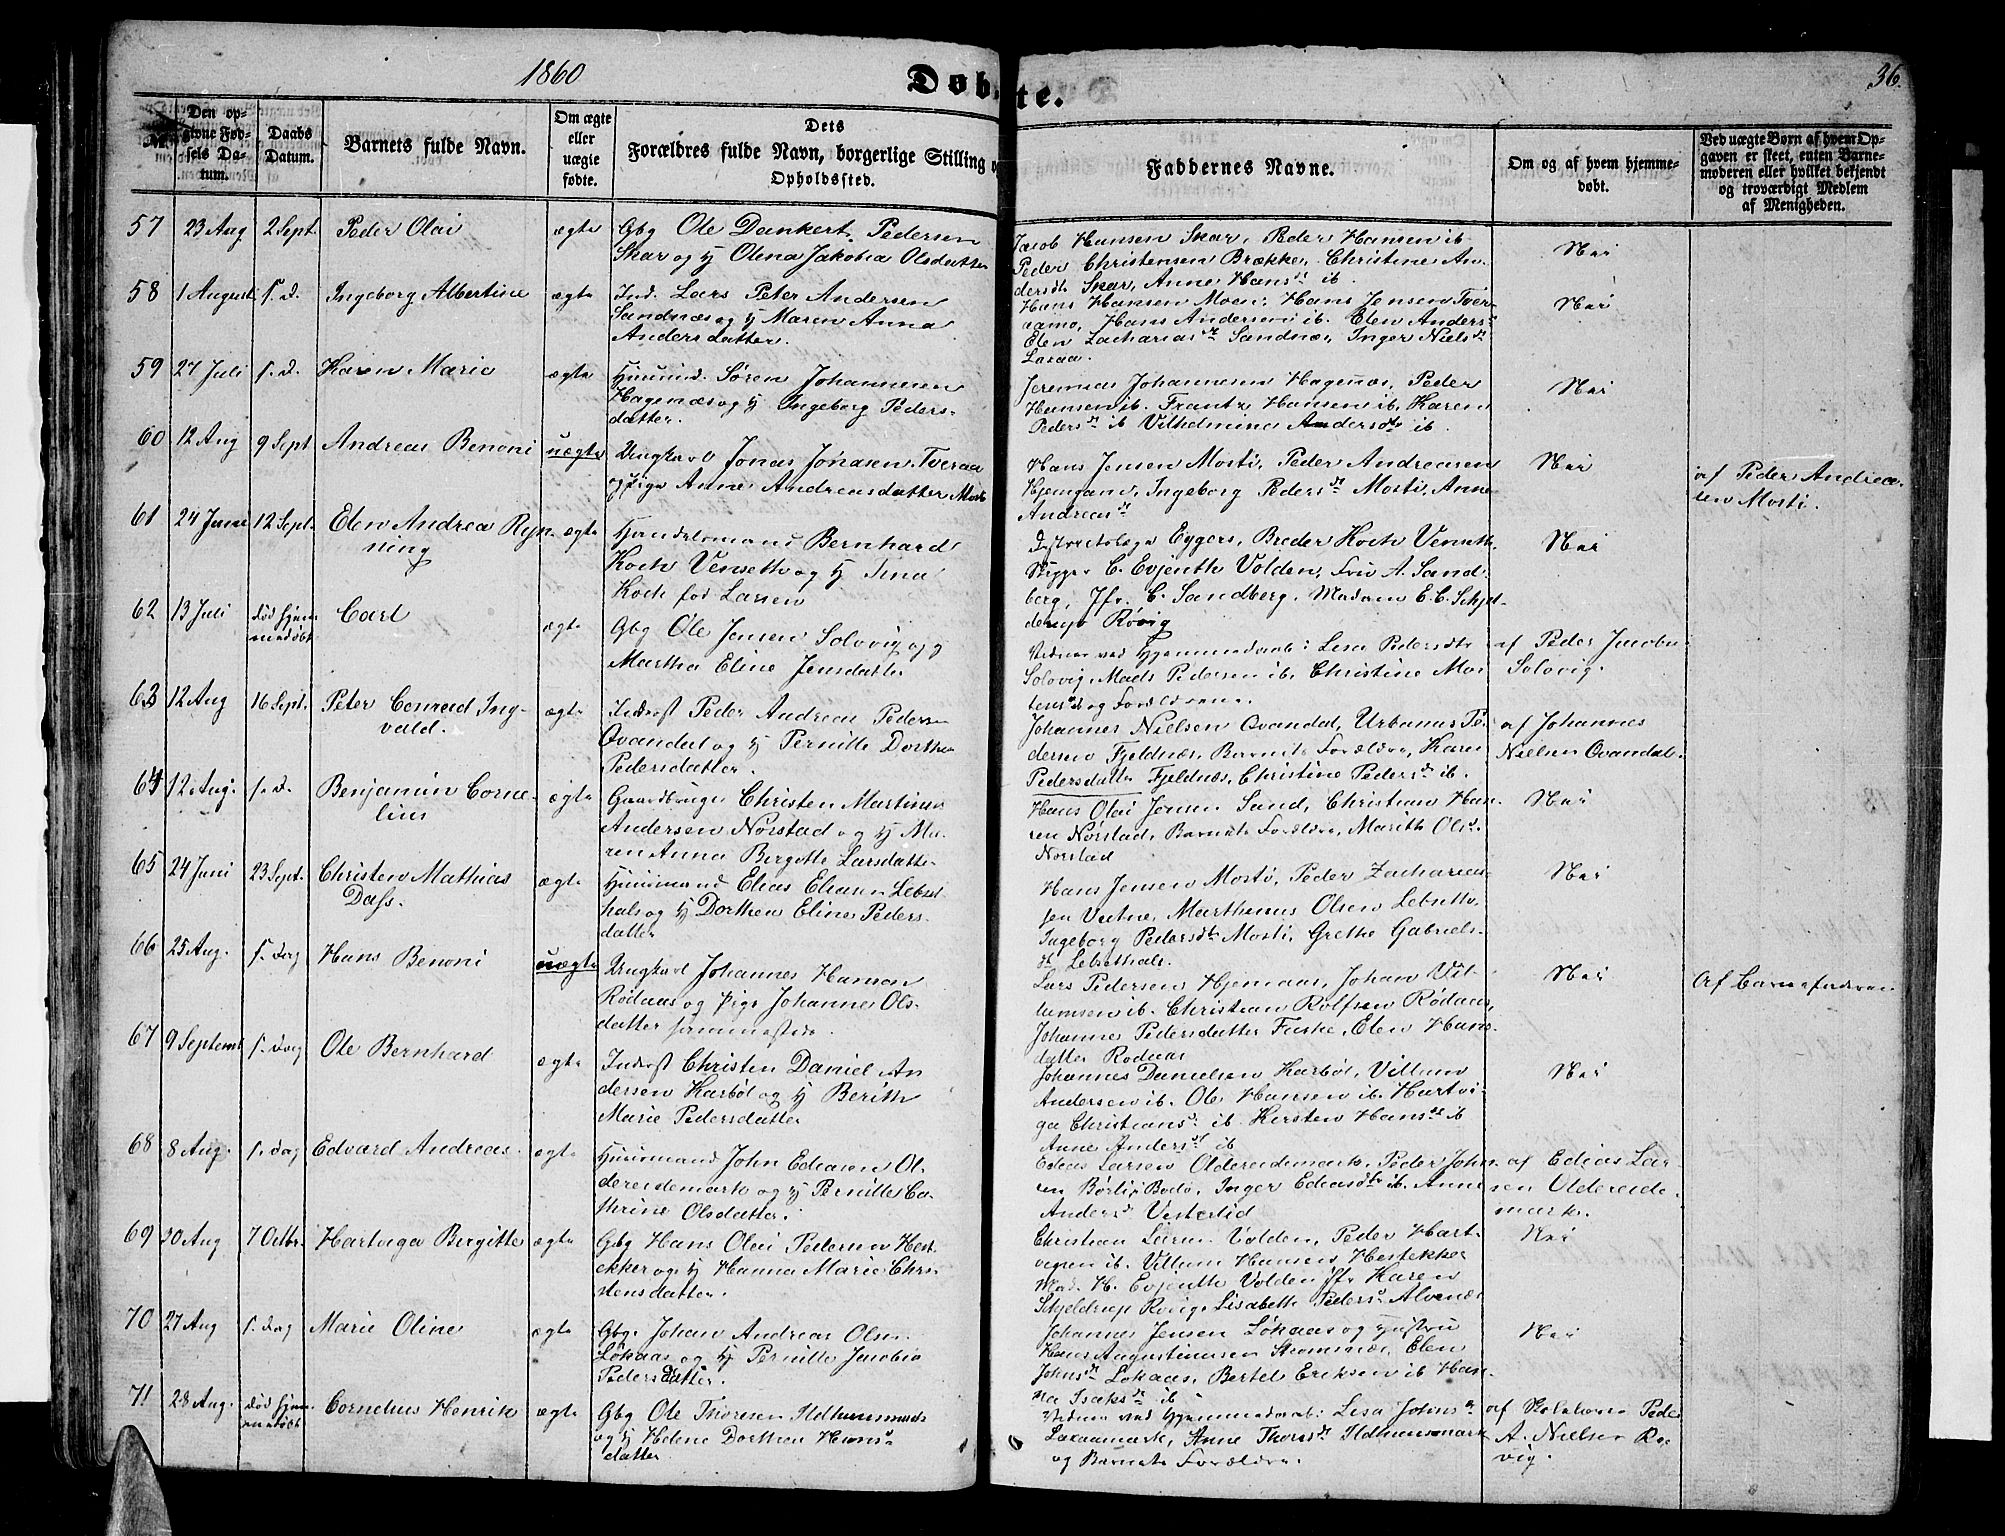 1860
Døbte.
36.
Den opgivne Fødsels Datum.
Daabs Datum.
Barnets fulde Navn.
Om ægte eller uægte fødte.
Dets
Forældres fulde Navn, borgerlige Stilling
Opholdssted.
Faddernes Navne.
Om og af hvem hjemmedøbt.
Ved uægte Børn af hvem Opgaven er skeet, enten Barnemoderen eller hvilket bekjendt og troværdigt Medlem af Menigheden.
57 23 Aug 2 Sept Peder Olai ægte Gbg Ole Dankert Pedersen
Skar og H Olena Jakobia Olsdatter
Jacob Hansen Skar, Peder Hansen ib
Peder Christensen Brække, Christine An-
dersdt Skar, Anne Hans ib.
Nei
58 1 August s. d. Ingeborg Albertine ægte Ind. Lars Peter Andersen
Sandnæs og H Maren Anna
Andersdatter.
Hans Hansen Moen, Hans Jensen Tver-
aamo, Hans Andersen ib. Elen Anders
Elen Zacharias dt Sandnæs, Inger Niels dt
Laxaa.
Nei
59 27 Juli s. d. Karen Marie ægte Huusmd. Søren Johannesen
Hagenæs og H Ingeborg Peders-
datter.
Jeremias Johannesen Hagenæs, Peder
Hansen ib. Frantz Hansen ib, Karen
Peders dt ib Vilhelmine Andersdtr ib.
Nei
60 12 Aug 9 Sept Andreas Benoni uægte Ungkarl Jonas Jonasen Tveraa
og Pige Anne Andreasdatter Mosti
Hans Jensen Mosti, Peder Andreasen
Hjemgam, Ingeborg Peders dt Mosti, Anne
Andreas dt
Nei
af Peder Andrea-
sen Mosti.
61 24 Juni 12 Sept. Elen Andrea Ryn-
ning
ægte Handelsmand Bernhard
Koch Vensetb og H Tina
Koch fød Larsen
Distriktslæge Eggers, Breder Koch Venseth
Skipper C. Evjenth Volden, Fru A. Sand-
berg, Jfr. C. Sandberg, Madam E. C. Schjel-
derup Røvig
Nei
62 13 Juli død hjem-
medøbt
Carl ægte Gbg Ole Jensen Solovig og
Martha Eline Jensdatter
Vidner ved Hjemmedaab: Lesa Pedersdtr
Solovig, Mads Pedersen ib, Christine Mor-
tens dt og Forældrene.
af Peder Jacobs
Solovig.
63 12 Aug 16 Sept. Peter Conrad Ing-
vald.
ægte Inderst Peder Andreas Peders
Ovandal og H Pernille Dorthea
Pedersdatter.
Johannes Nielsen Ovandal, Urbanus Pe-
dersen Fjeldnæs, Barnets Forældre, Karen
Pedersdatter Fjeldnæs, Christine Peders dt ib.
af Johannes
Nielsen Ovandal.
64 12 Aug. s. d. Benjamin Corne-
lius
ægte Gaardbruger Christen Martinus
Andersen Nørstad og H Ma-
ren Anna Bergitte Larsdatter
Hans Olai Jensen Sand, Christian Han-
sen Nørstad, Barnets Forældre, Marith Ols
Norstad
Nei
65 24 Juni 23 Sept. Christen Mathias
Dass.
ægte Huusmand Elias Eliasen Lebset-
hals og H Dorthea Eline Peders-
datter
Hans Jensen Mosti, Peder Zacharias-
sen Vætne, Marthinus Olsen Lebseth
Ingeborg Pedersdtr Mosti, Grethe Gabriels-
dt Lebsethals.
Nei
66 25 Aug. s. Dag Hans Benoni uægte Ungkarl Johannes Hanson
Rødaas og Pige Johanne Ols-
datter sammesteds.
Lars Pedersen Hjemaas, Johan Vil-
lumsen ib. Christian Rolfsen Rødaas,
Johanne Pedersdatter Fuske, Elen Hans-
datter Rodaas
Nei
Af Barnefaderen
67 9 Septemb s. Dag Ole Bernhard ægte Inderst Christen Daniel An-
dersen Karbøl og H Berith
Marie Pedersdatter
Johannes Danielsen Karbøl, Villum
Andersen ib. Ole Hansen ib. Hartvi-
ga Christians ib. Kirsten Hans dt ib
Anne Anders dt ib
Nei
68 8 Aug. s. Dag Edvard Andreas. ægte Huusmand John Eliasen Ol-
dereidemark og H Pernille Ca-
thrine Olsdatter.
Elias Larsen Oldereidemark, Peder Johan-
sen Børlis Bodø, Inger Eliasdtr ib. Anne
Anders dt Vesterlid
af Elias Lar-
sen Oldereide-
mark.
69 30 Aug 7 Octbr. Hartviga Bergitte ægte Gbg Hans Olai Pedersen Hest-
ekker og H Hanna Marie Chri-
stensdatter.
Christian Volden, Peder Hart-
vigsen ib. Villum Hansen Hestekker
Mad. H. Evjenth Volden Jfr Karen
Schjeldrup Rovig, Lisabeth Peders dt Alvenæs
Nei
70 27 Aug s. Dag Marie Oline ægte Gbg. Johan Andreas Olsen
Løkaas og H Pernille Jacobia
Pedersdatter.
Johannes Jensen Løkaas og Hustru
Hans Augustinusen Strømnæs, Elen
Johns dt Løkaas, Bertel Eriksen ib Han-
na Isaks dt ib
Nei
71 28 Aug. død hjem-
medøbt
Cornelius Henrik ægte Gbg Ole Thoresen Ildhusmark
og H Helene Dorthea Hans-
datter
Vidner ved Hjemmedaab: Lesa Johns dt
Laxaamark, Anne Thores dt Ildhusmark
og Barnets Forældre.
af Skolelærer Peder
A. Nielsen Rø-
vig.